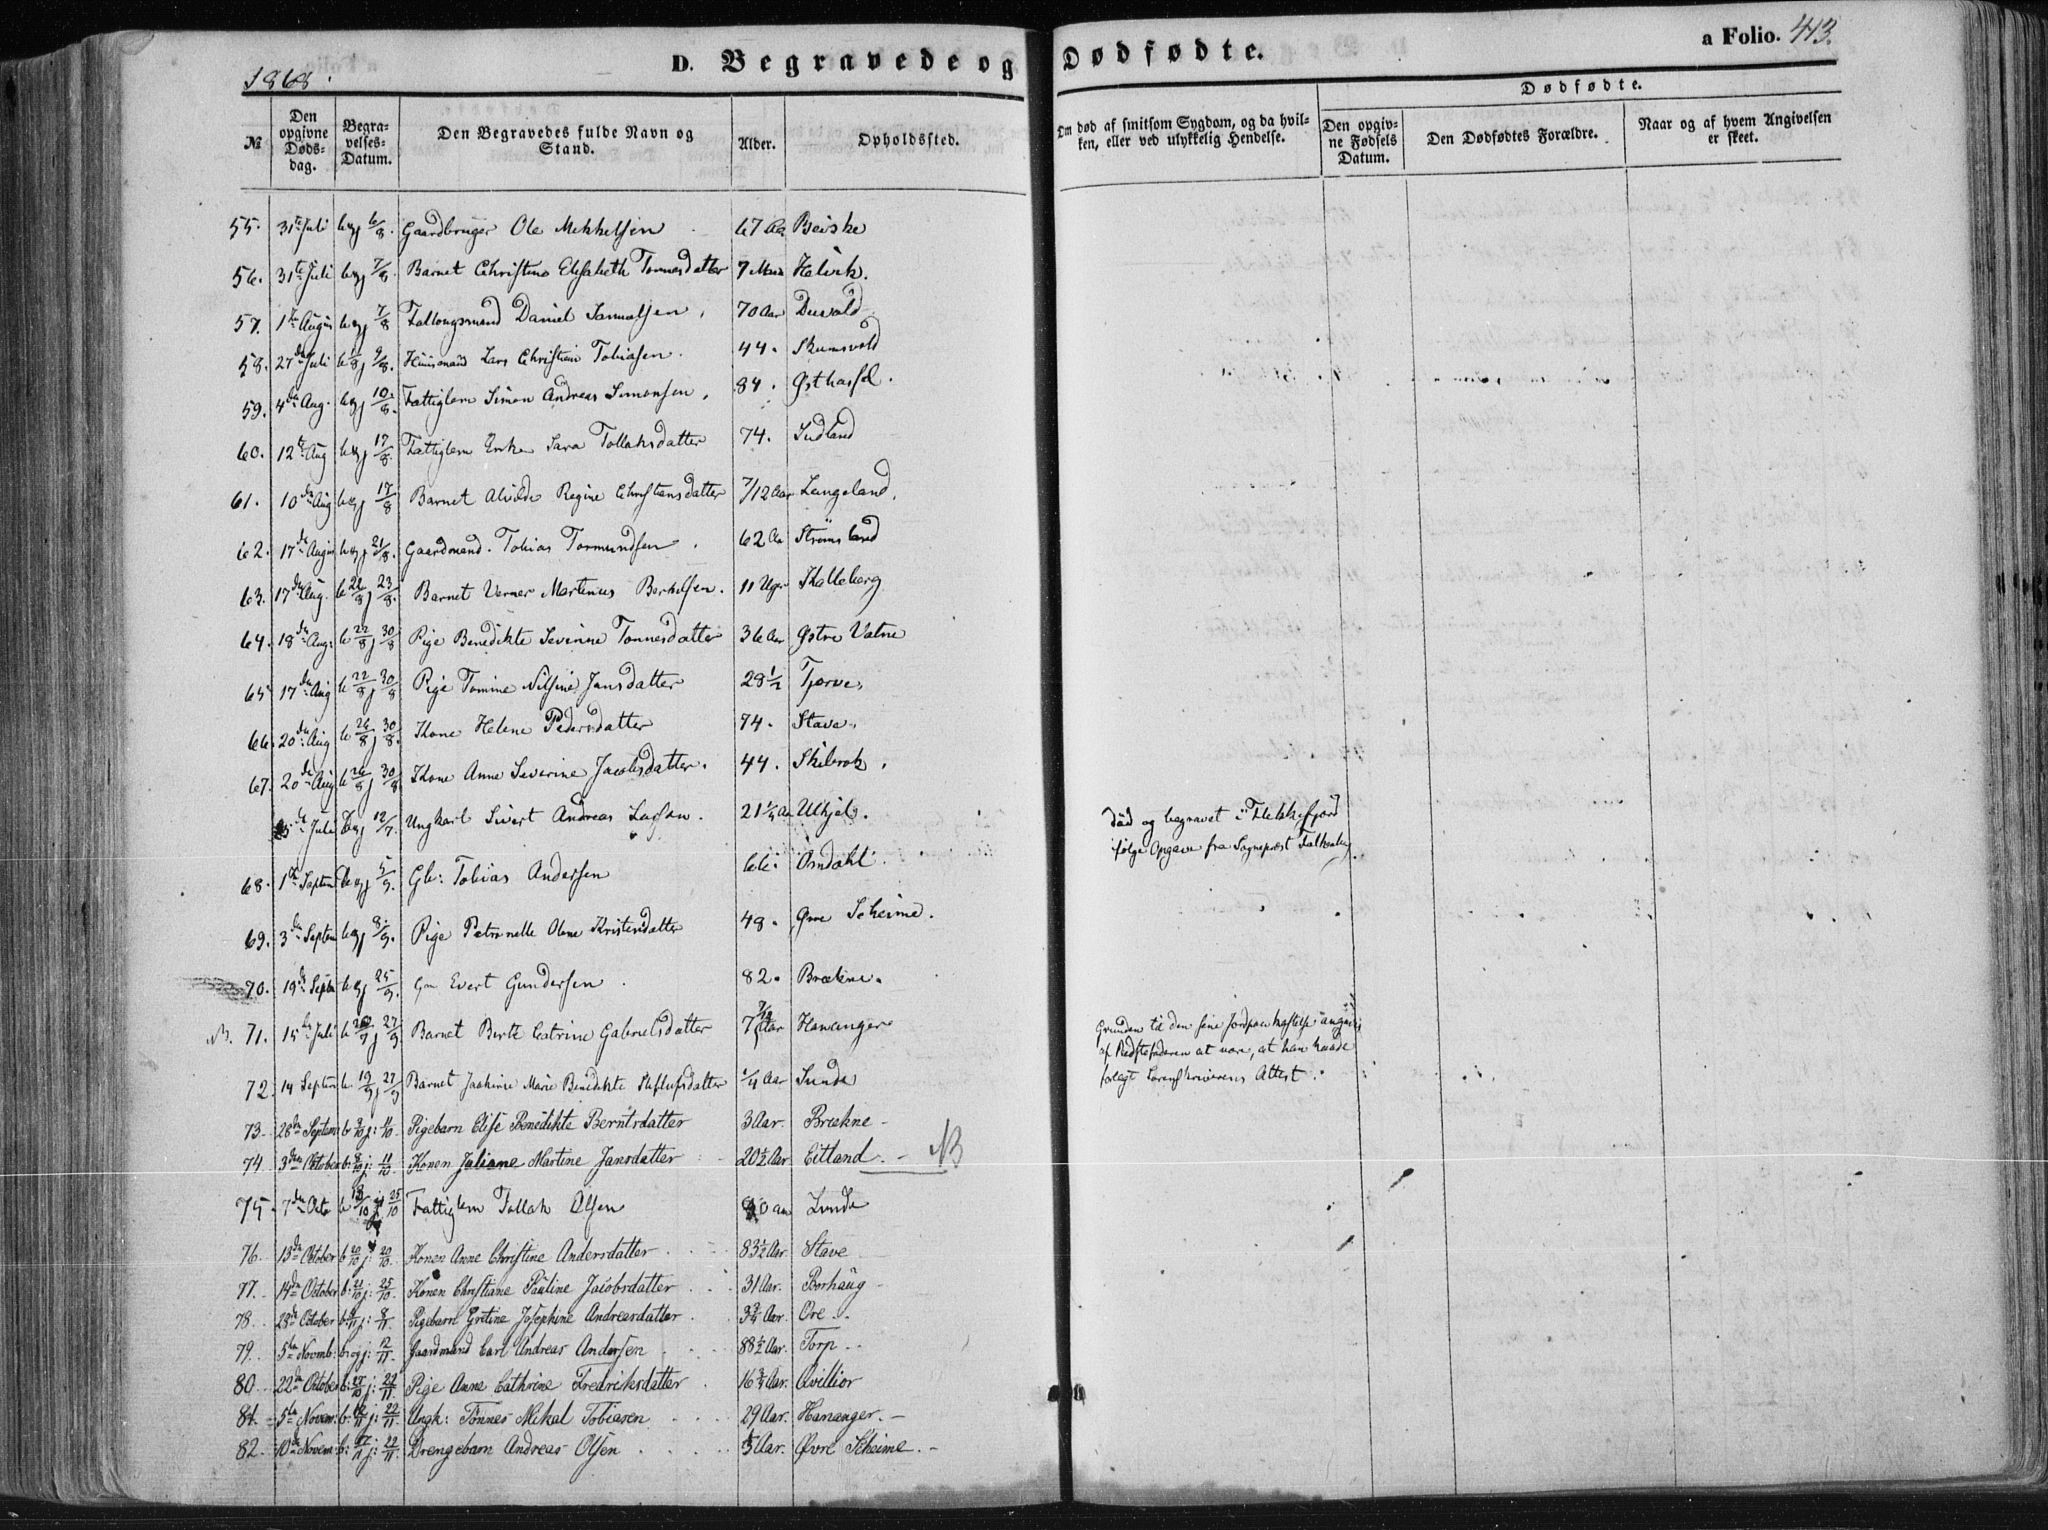 1868.
D. Begravede og Dødfødte.
a Folio. 413.
№ | Den opgivne Dødsdag. | Begravelses-Datum. | Den Begravedes fulde Navn og Stand. | Alder. | Opholdssted. | Om død af smitsom Sygdom, og da hvilken, eller ved ulykkelig Hendelse. | Dødfødte.
Den opgivne Fødsels Datum. | Den Dødfødtes Forældre. | Naar og af hvem Angivelsen er skeet.
55. 31te Juli b og j 6/8. Gaardbruger Ole Mekkelsen 67 Aa Beiske
56. 31te Juli b og j 7/8. Barnet Christine Elisabeth Tonnesdatter 7 Helvik.
57. 1te August b og j 7/8 Daniel Samuelsen, 70 Aar
58. 27de Juli b 1/8 j 9/8. Huusmand Lars Christian Tobiasen. 44. Skumsvold
59. 4de Aug. b og j 10/8. Fattiglem Simon Andreas Simonsen, 84. Østhassel.
60. 12te Aug b og j 17/8. Fattiglem Enke Sara Tollaksdatter 74. Indland
61. 10de Aug b og j 17/8 Barnet Alvilde Regine Christensdatter 7/12 Aar Langeland.
62. 17de August b og j 21/8. Gaardmand. Tobias Tormundsen. 62 Aa Strømsland
63. 17de Aug. b 22/8 j 23/8. Barnet Verner Martinus Berthelsen. 11 Uger Kalleberg
64. 18de Aug: b 22/8 j 30/8 Pige Benedikte Severine Tonnesdatter 36 Aar Østre Vatne
65 17de Aug b 22/8 j 30/8 Pige Tomine Nilsine Jansdatter 28 1/2 Tjørve,
66. 20de Aug b 26/8 j 30/8. Kone Helene Pedersdatter 74. Stave.
67. 20de Aug b 26/8 j 30/8 Kone Anne Severine Jacobsdatter. 44. Skibrok.
5de Juli b og j 12/7. Ungkarl Sivert Andreas 21 1/4 Aa Ulhjel. død og begravet i Flekkefjord
ifølge Opgave fra Sognepræst
68. 1te Septem b og j 5/9. Gb: Tobias Andersen 66. Omdahl.
69. 3de Septem b og j 8/9. Pige Petronelle Olene Kristensdatter 48. Øvre Scheime.
70. 19de Septe b og j 25/9. Gm Evert Gundersen. 82. Brækne.
NB. 71. 15de Juli b 20/7 j 27/9. Barnet Berte Catrine Gabrielsdatter 7 7/12 Aar Hananger Grunden til den sene Jordpaakastelse angives
af Bedstefaderen at være, at han havde
72. 14 Septem b 19/9 j 27/9 Barnet Joakime Marie Benedikte datter 1/4 Aar Sunde forlagt Lensmandens Attest.
73. 28de Septem b 9/10 j: 11/10. Pigebarn Elise Benedikte Berntsdatter 3 Aar. Brekne
74. 3die October b: 8/10 j: 11/10. Konen Juliane Martine Jansdatter 20 1/2 Aar Eitland. NB
75. 7de Octo b 13/10 j 25/10 Fattiglem Tollak Olsen 80 aar Lunde
76. 13de October b 20/10 j: 20/10. Konen Anne Christine Andersdatter 83 1/2 Aar. Stave
77. 14de October b: 21/10 j: 25/10. Konen Christiane Pauline Jacobsdatter 31 Aar. Borhaug
78. 28de October b: 8/11 j: 8/11. Pigebarn Gretine Josephine Andreasdatter 3 3/4 Aar. Ore.
79. 5te Novmb: b: og j: 12/11. Gaardmand Carl Andreas Andersen 88 1/2 Aar. Torp
80. 22de October b: 27/10 j: 22/11. Pige Anne Cathrine Fredriksdatter 16 3/4 Aar. Qvillior
81. 5te Novem: b: 12/11 j: 22/11. Ungk: Tønnes Mikal Tobiasen 29 Aar. Hananger.
82. 10de Novem: b: 17/11 j: 22/11. Drengebarn Andreas Olsen 5 Aar. Øvre Scheime.